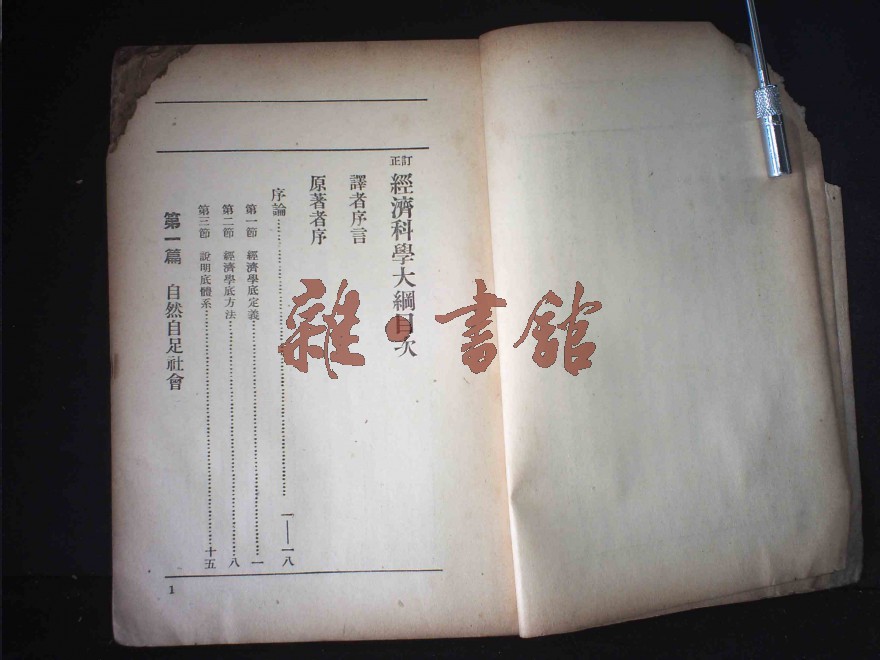 訂正 經濟科學大綱目次
譯者序言
原著者序
序論……一——一八
第一節 經濟學底定義……一
第二節 經濟學底方法……八
第三節 說明底體系……十五
第一篇 自然自足社會
1
雜·書館